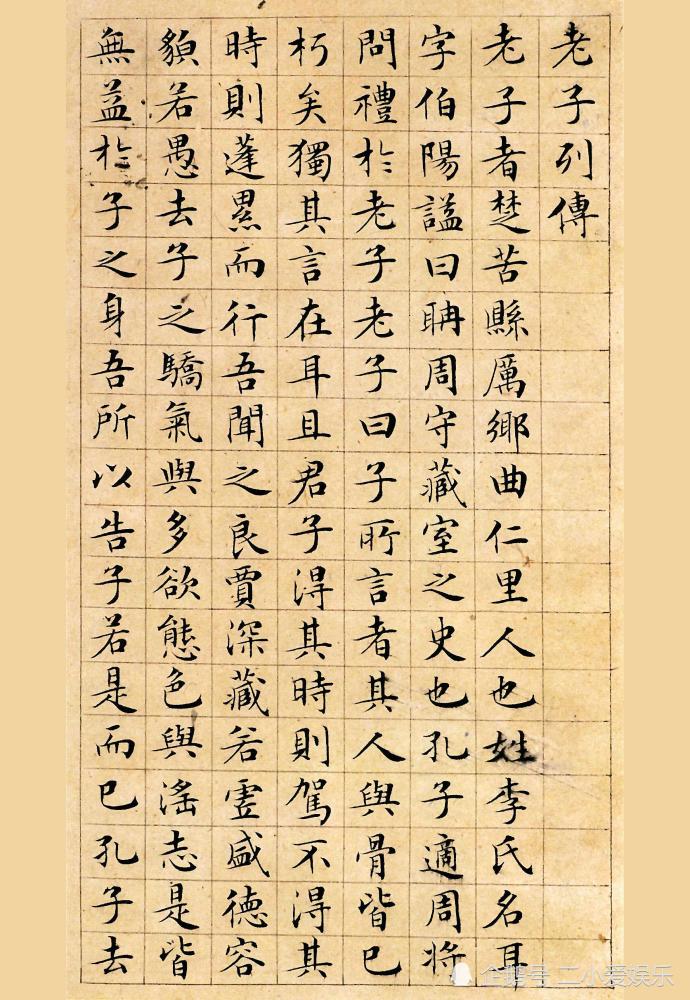 老子列傳
老子者楚苦縣厲鄉曲仁里人也姓李氏名耳
字伯陽謚曰聃周守藏室之史也孔子適周將
問禮於老子老子曰子所言者其人與骨皆已
朽矣獨其言在耳且君子得其時則駕不得其
時則蓬累而行吾聞之良賈深藏若虛盛德容
貌若愚去子之驕氣與多欲態色與淫志是皆
無益於子之身吾所以告子若是而已孔子去
企鹅号 二小爱娱乐